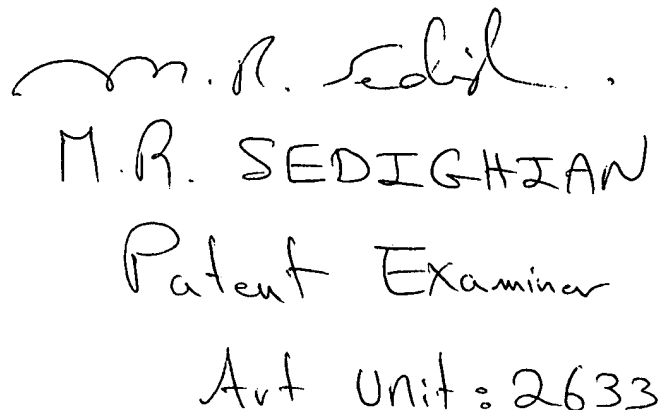 M. R. Sedigh..
M.R. SEDIGHIAN
Patent Examiner
Art Unit: 2633